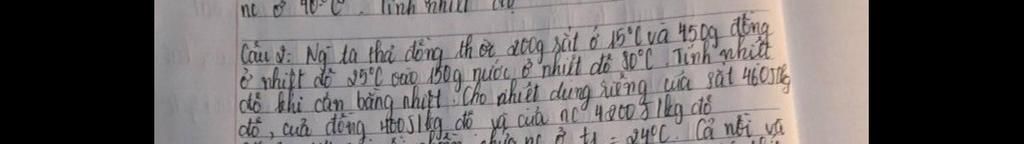 nc ở 40°C. Tính nhiệt
Câu 2: Ng ta thả đồng th ời 200g sắt ở 15°C và 450g đồng
ở nhiệt độ 25°C vào 150g nước ở nhiệt độ 80°C. Tính nhiệt
độ khi cân bằng nhiệt. Cho nhiệt dung riêng của sắt 460J/kg
độ, của đồng 400J/kg độ và của nc 4200J/kg độ
nc ở t1 = 24°C. Cả nồi và